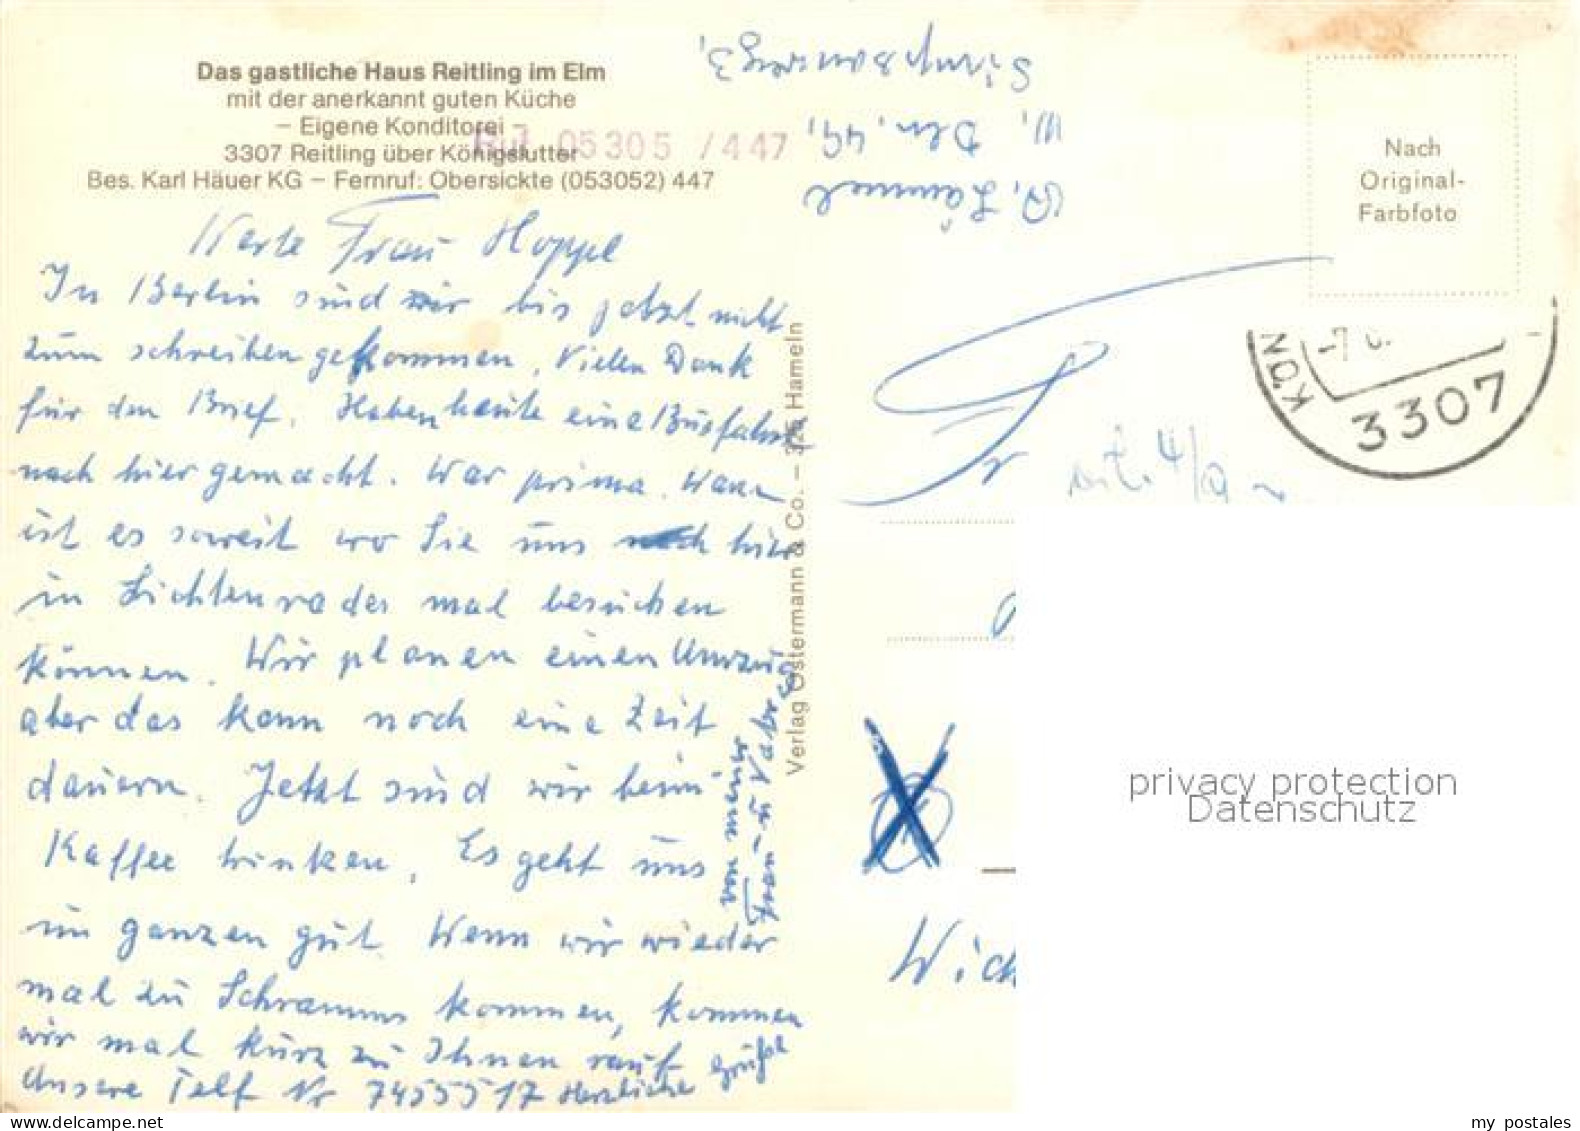 Das gastliche Haus Reitling im Elm
mit der anerkannt guten Küche
– Eigene Konditorei –
3307 Reitling über Königslutter
Bes. Karl Häuer KG – Fernruf: Obersickte (053052) 447
Ruf 05305 / 447
Werte Frau Hoppe
In Berlin sind wir bis jetzt nicht
zum schreiben gekommen. Vielen Dank
für den Brief. Haben heute eine Busfahrt
nach hier gemacht. War prima. Wann
ist es soweit wo Sie uns hier
in Lichtenrade mal besuchen
können. Wir planen einen Umzug
aber das kann noch eine Zeit
dauern. Jetzt sind wir beim
Kaffee trinken. Es geht uns
im ganzen gut. Wenn wir wieder
mal zu Schramms kommen, kommen
wir mal kurz zu Ihnen rauf
Unsere Telf Nr 7455517 Herzliche Grüße
von meiner
Frau u
Verlag Ostermann & Co. – 325 Hameln
Lämmel
Bln. 49,
Simpsonweg 3,
Nach
Original-
Farbfoto
KÖN
3307
Fr
Wich
privacy protection
Datenschutz
my postales